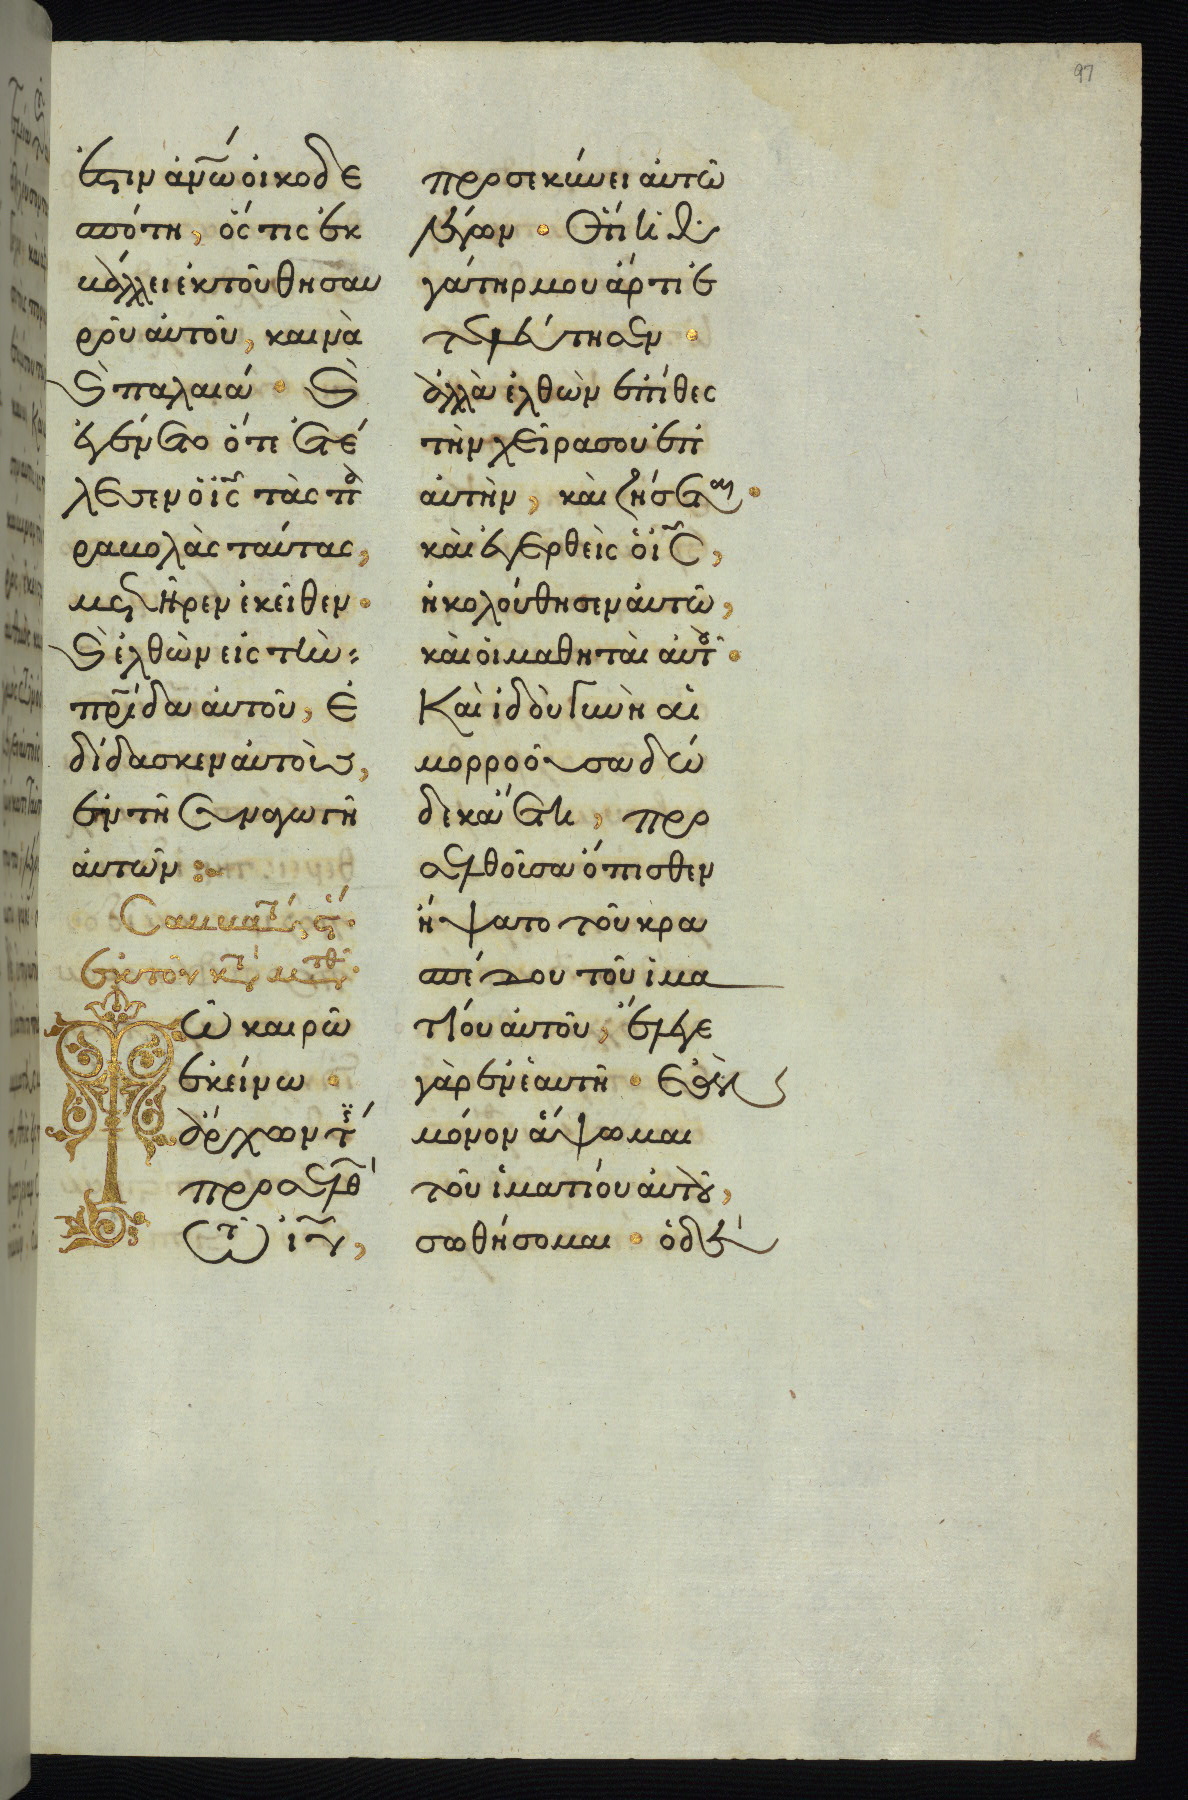 97
ἐστιν ἀν̅ω̅ οἰκοδε
σπότη, ὅστις ἐκ
βάλλει ἐκ τοῦ θησαυ
ροῦ αὐτοῦ, καινὰ
ϗ παλαιά · ϗ
ἐγένετο ὅτε ἐτέ
λεσεν ὁ ις̅ τὰς πα
ραβολὰς ταύτας,
μετῆρεν ἐκεῖθεν ·
ϗ ἐλθὼν εἰς τὴν
πρ̅ίδα αὐτοῦ, ἐ
δίδασκεν αὐτοὺς,
ἐν τῆ συναγωγῆ
αὐτῶν :
Σαββάτ ϛ·
ἐκ τοῦ κτ μτθ ·
Τῶ καιρῶ
ἐκείνω ·
ἄρχων τις
προσελθ
τῶ ιυ̅,
προσεκύνει αὐτῶ
λέγων · Ὅτι ἡ θυ
γάτηρ μου ἄρτι ἐ
τελεύτησεν ·
ἀλλὰ ἐλθὼν ἐπίθες
τὴν χεῖρα σου ἐπ᾿
αὐτὴν, καὶ ζήσεται ·
καὶ ἐγερθεὶς ὁ ις̅,
ἠκολούθησεν αὐτῶ,
καὶ οἱ μαθηταὶ αὐτοῦ ·
Καὶ ἰδοὺ γυνὴ αἱ
μορροοῦσα δώ
δεκα ἔτη, προ
σελθοῦσα ὄπισθεν
ἥψατο τοῦ κρα
σπέδου τοῦ ἱμα
τίου αὐτοῦ, ἔλεγε
γὰρ ἐν ἑαυτῆ · Ἐὰν
μόνον ἅψωμαι
τοῦ ἱματίου αὐτοῦ,
σωθήσομαι · ὁ δὲ